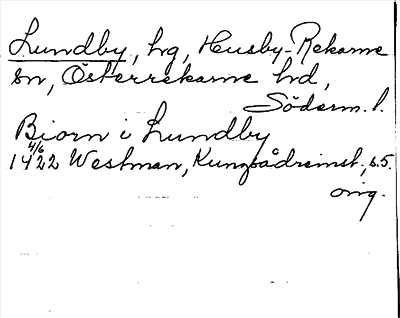 Lundby, hg, Husby-Rekarne
sn, Österrekarne hd,
Söderm. l.
Biorn i Lundby
4/6
1422 Westman, Kungsådreinst., s.5.
orig.